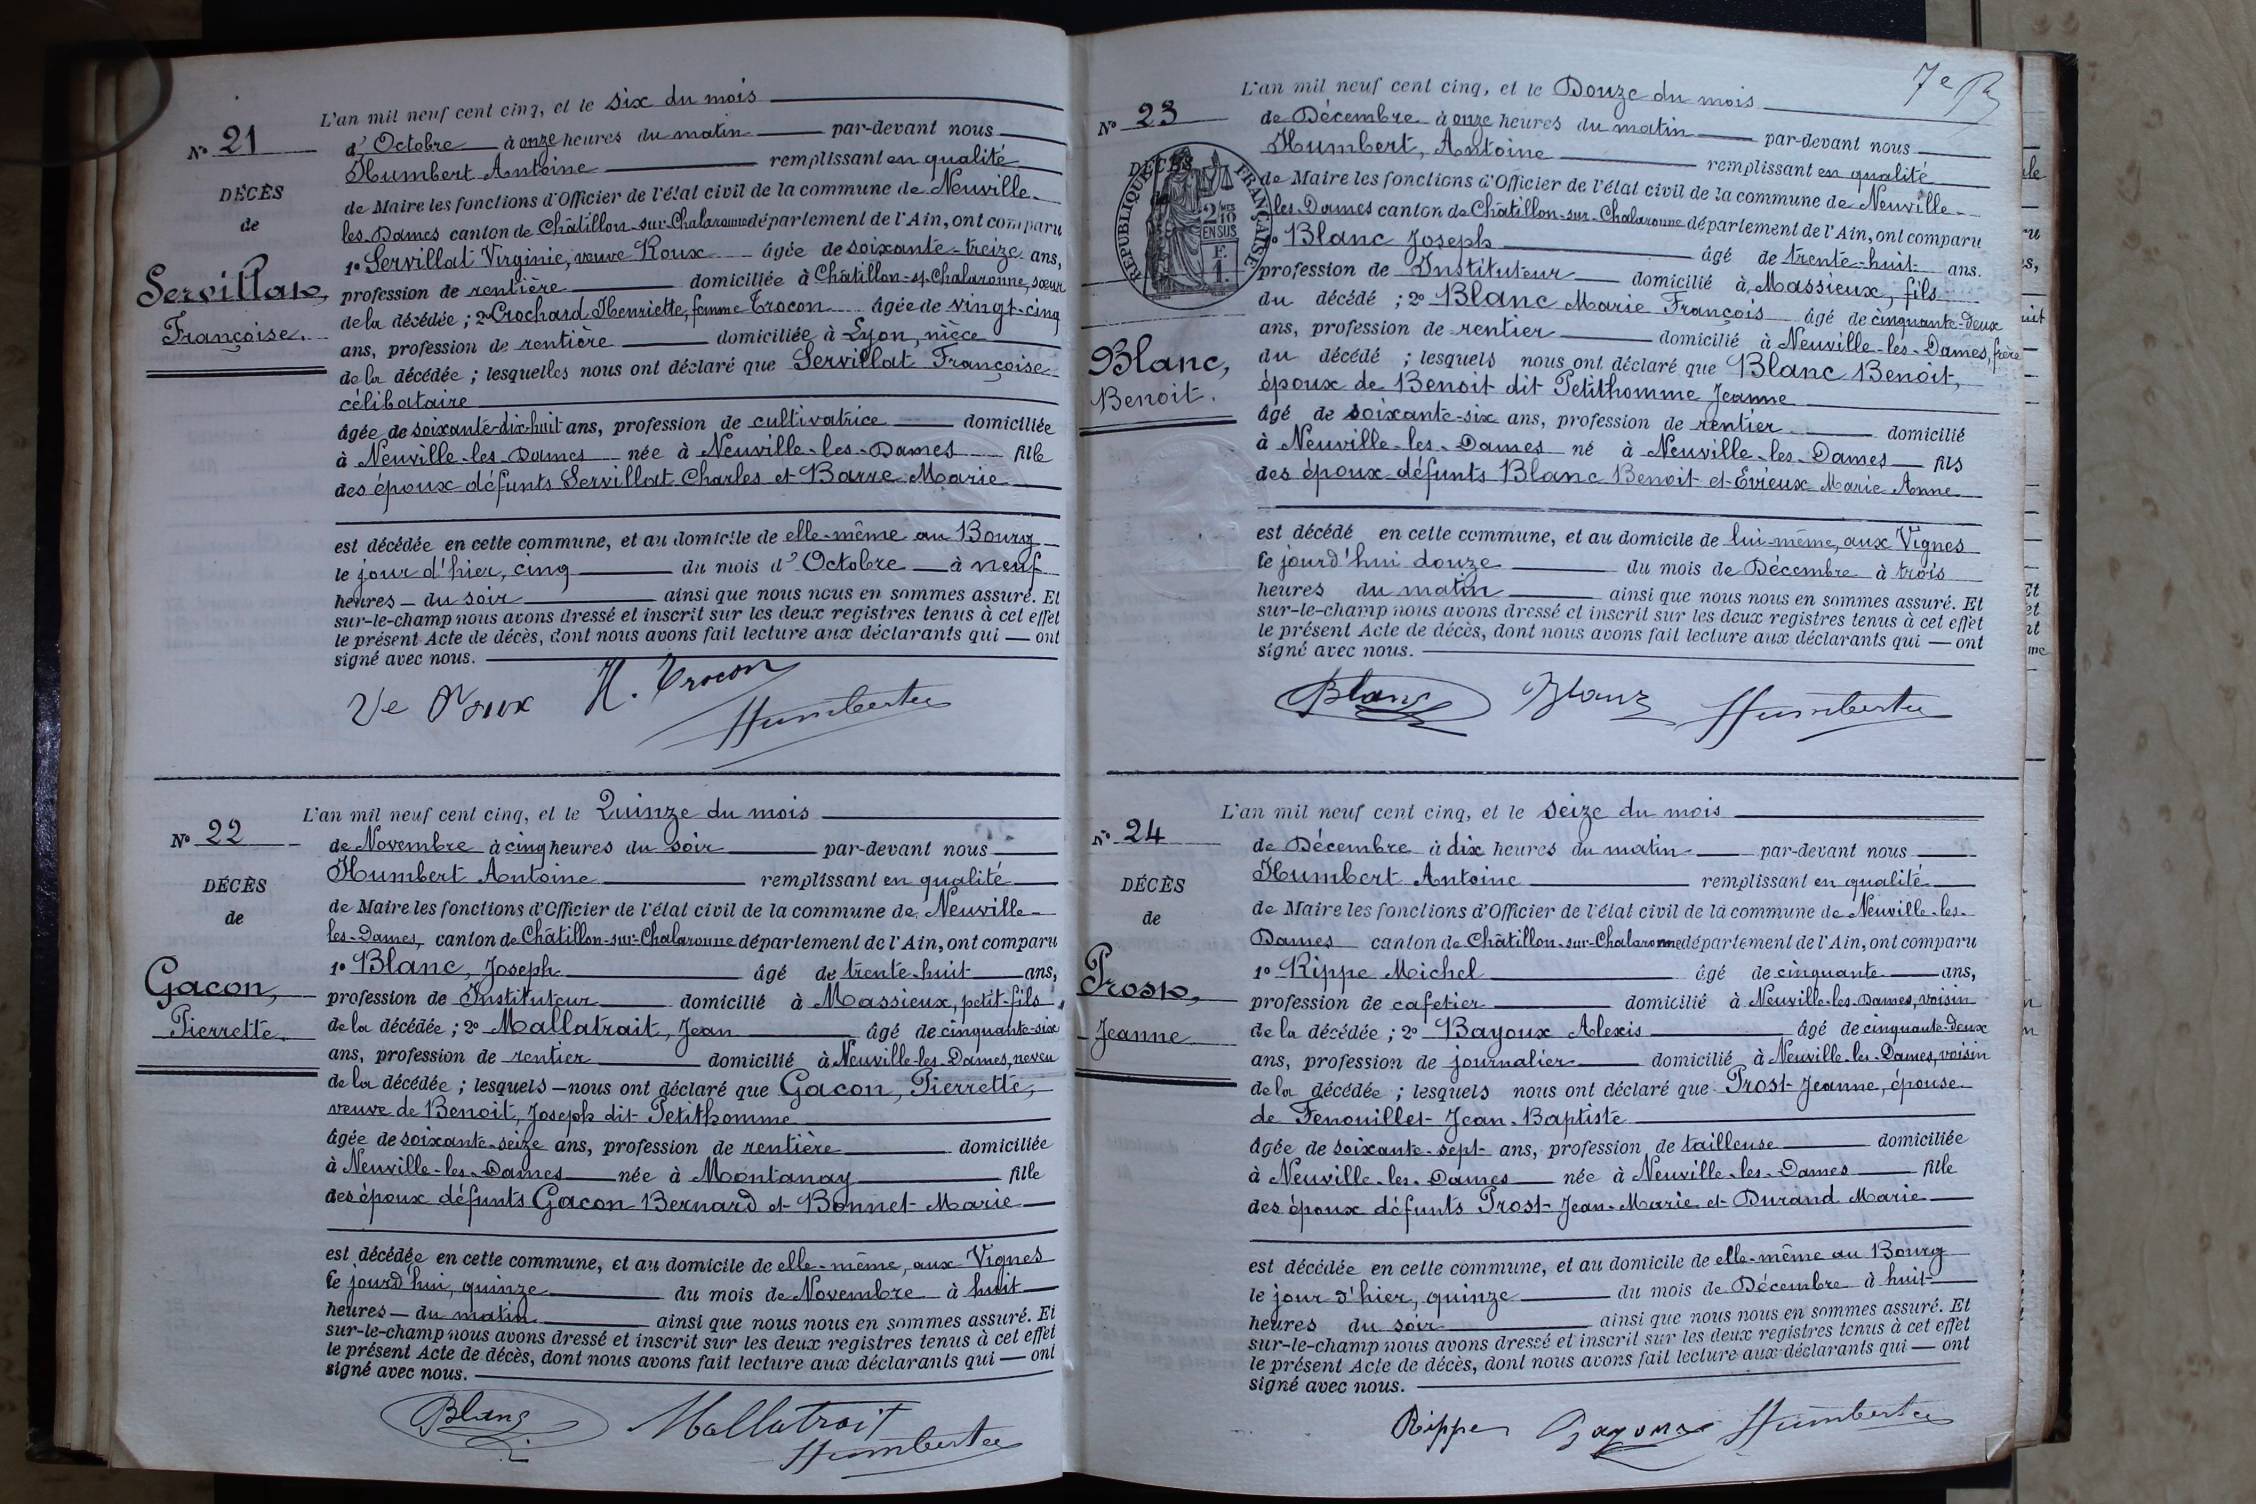 L'an mil neuf cent cinq, et le six du mois
N° 21
d'Octobre à onze heures du matin par-devant nous
Humbert Antoine remplissant en qualité
DÉCÈS
de Maire les fonctions d'Officier de l'état civil de la commune de Neuville-
de
les-Dames canton de Châtillon-sur-Chalaronne département de l'Ain, ont comparu
1° Servillat Virginie, veuve Roux âgée de soixante-treize ans,
Servillat,
profession de rentière domiciliée à Châtillon-s/-Chalaronne, sœur
Françoise.
de la décédée ; 2° Crochard Henriette, femme Trocon âgée de vingt-cinq
ans, profession de rentière domiciliée à Lyon, nièce
de la décédée ; lesquelles nous ont déclaré que Servillat Françoise
célibataire
âgée de soixante-dix-huit ans, profession de cultivatrice domiciliée
à Neuville-les-Dames née à Neuville-les-Dames fille
des époux défunts Servillat Charles et Barre Marie
est décédée en cette commune, et au domicile de elle-même au Bourg
le jour d'hier, cinq du mois d'Octobre à neuf
heures du soir ainsi que nous nous en sommes assuré. Et
sur-le-champ nous avons dressé et inscrit sur les deux registres tenus à cet effet
le présent Acte de décès, dont nous avons fait lecture aux déclarants qui — ont
signé avec nous.
Ve Roux H. Trocon Humbert
L'an mil neuf cent cinq, et le Quinze du mois
N° 22
de Novembre à cinq heures du soir par-devant nous
Humbert Antoine remplissant en qualité
DÉCÈS
de Maire les fonctions d'Officier de l'état civil de la commune de Neuville-
de
les-Dames, canton de Châtillon-sur-Chalaronne département de l'Ain, ont comparu
1° Blanc, Joseph âgé de trente-huit ans,
Gacon,
profession de Instituteur domicilié à Massieux, petit-fils
Pierrette.
de la décédée ; 2° Mallatrait, Jean âgé de cinquante-six
ans, profession de rentier domicilié à Neuville-les-Dames, neveu
de la décédée ; lesquels — nous ont déclaré que Gacon, Pierrette,
veuve de Benoit, Joseph dit Petithomme
âgée de soixante-seize ans, profession de rentière domiciliée
à Neuville-les-Dames née à Montanay fille
des époux défunts Gacon Bernard et Bonnet Marie
est décédée en cette commune, et au domicile de elle-même, aux Vignes
le jourd'hui, quinze du mois de Novembre à huit
heures — du matin ainsi que nous nous en sommes assuré. Et
sur-le-champ nous avons dressé et inscrit sur les deux registres tenus à cet effet
le présent Acte de décès, dont nous avons fait lecture aux déclarants qui — ont
signé avec nous.
Blanc Mallatrait
Humbert
7e
L'an mil neuf cent cinq, et le Douze du mois
N° 23
de Décembre à onze heures du matin par-devant nous
Humbert, Antoine remplissant en qualité
DÉCÈS
RÉPUBLIQUE FRANÇAISE
2/10 EN SUS
F. 1
de Maire les fonctions d'Officier de l'état civil de la commune de Neuville-
les-Dames canton de Châtillon-sur-Chalaronne département de l'Ain, ont comparu
1° Blanc Joseph âgé de trente-huit ans.
profession de Instituteur domicilié à Massieux, fils
du décédé ; 2° Blanc Marie François âgé de cinquante-deux
ans, profession de rentier domicilié à Neuville-les-Dames, frère
Blanc,
Benoit.
du décédé ; lesquels nous ont déclaré que Blanc Benoit,
époux de Benoit dit Petithomme Jeanne
âgé de soixante-six ans, profession de rentier domicilié
à Neuville-les-Dames né à Neuville-les-Dames fils
des époux défunts Blanc Benoit et Évieux Marie Anne
est décédé en cette commune, et au domicile de lui-même, aux Vignes
le jourd'hui douze du mois de Décembre à trois
heures du matin ainsi que nous nous en sommes assuré. Et
sur-le-champ nous avons dressé et inscrit sur les deux registres tenus à cet effet
le présent Acte de décès, dont nous avons fait lecture aux déclarants qui — ont
signé avec nous.
Blanc Blanc Humbert
L'an mil neuf cent cinq, et le seize du mois
N° 24
de Décembre à dix heures du matin par-devant nous
Humbert Antoine remplissant en qualité
DÉCÈS
de Maire les fonctions d'Officier de l'état civil de la commune de Neuville-les-
de
Dames canton de Châtillon-sur-Chalaronne département de l'Ain, ont comparu
1° Rippe Michel âgé de cinquante ans,
Prost,
profession de cafetier domicilié à Neuville-les-Dames, voisin
Jeanne
de la décédée ; 2° Bayoux Alexis âgé de cinquante-deux
ans, profession de journalier domicilié à Neuville-les-Dames, voisin
de la décédée ; lesquels nous ont déclaré que Prost Jeanne, épouse
de Fenouillet Jean-Baptiste
âgée de soixante-sept ans, profession de tailleuse domiciliée
à Neuville-les-Dames née à Neuville-les-Dames fille
des époux défunts Prost Jean-Marie et Durand Marie
est décédée en cette commune, et au domicile de elle-même au Bourg
le jour d'hier, quinze du mois de Décembre à huit
heures du soir ainsi que nous nous en sommes assuré. Et
sur-le-champ nous avons dressé et inscrit sur les deux registres tenus à cet effet
le présent Acte de décès, dont nous avons fait lecture aux déclarants qui — ont
signé avec nous.
Rippe Bayoux Humbert